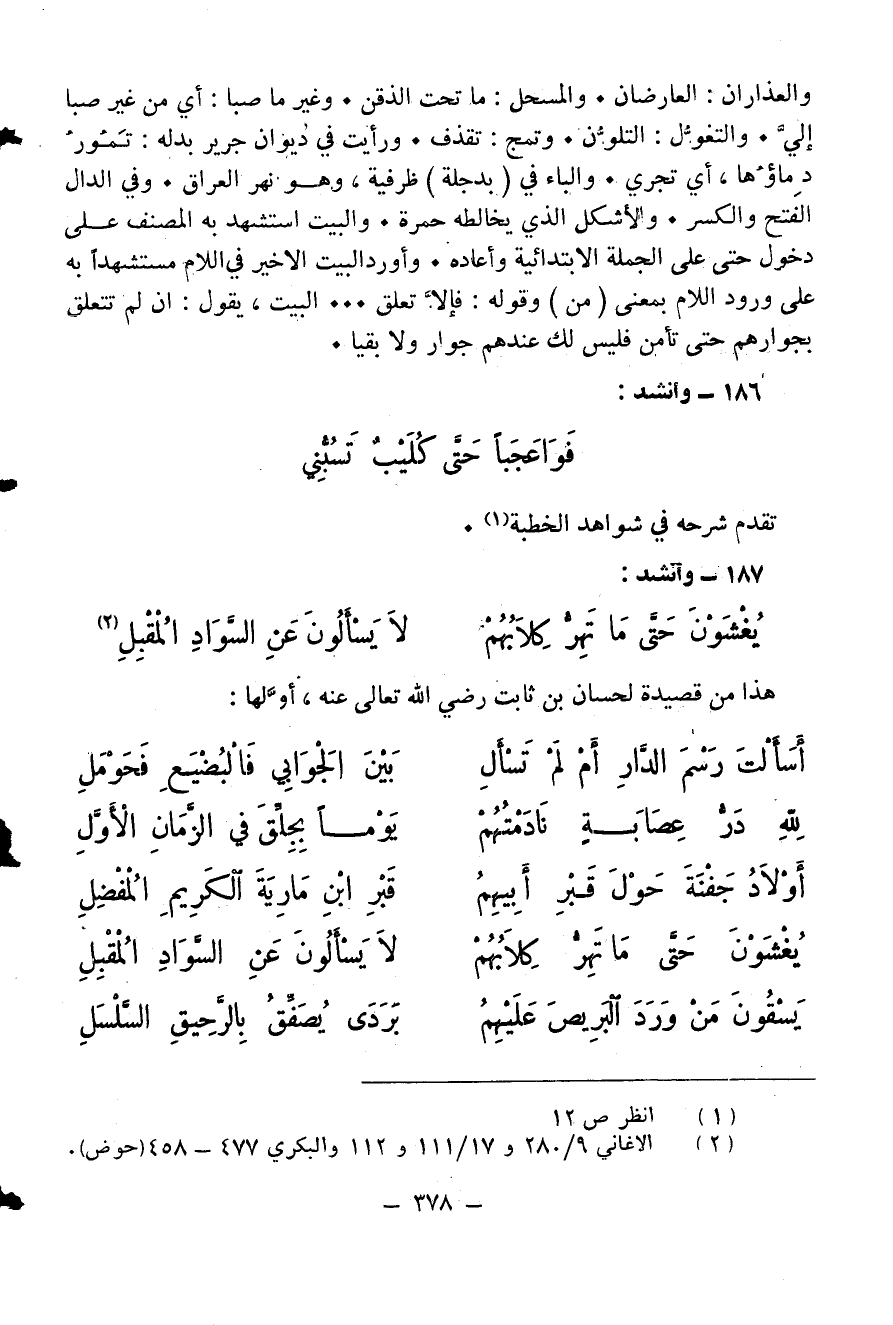 والعذاران : العارضان • والمسحل : ما تحت الذقن • وغير ما صبا : أي من غير صبا
إليَّ • والتغوُّل : التلوُّن • وتمج : تقذف • ورأيت في ديوان جرير بدله : تَمُورُ
دِماؤُها ، أي تجري • والباء في ( بدجلة ) ظرفية ، وهــو نهر العراق • وفي الدال
الفتح والكسر • والأشكل الذي يخالطه حمرة • والبيت استشهد به المصنف عــلى
دخول حتى على الجملة الابتدائية وأعاده • وأورد البيت الاخير في اللام مستشهداً به
على ورود اللام بمعنى ( من ) وقوله : فإلاَّ تعلق ••• البيت ، يقول : ان لم تتعلق
بجوارهم حتى تأمن فليس لك عندهم جوار ولا بقيا •
١٨٦ – وأنشد :
فَوَاعَجَباً حَتَّى كُلَيْبٌ تَسُبُّنِي
تقدم شرحه في شواهد الخطبة(١) •
١٨٧ – وأنشد :
يُغْشَوْنَ حَتَّى مَا تَهِرُّ كِلَابُهُمْ لاَ يَسْأَلُونَ عَنِ السَّوَادِ الْمُقْبِلِ(٢)
هذا من قصيدة لحسان بن ثابت رضي الله تعالى عنه ، أوَّلها :
أَسَأَلْتَ رَسْمَ الدَّارِ أَمْ لَمْ تَسْأَلِ بَيْنَ الْجَوَابِي فَالْبُضَيْعِ فَحَوْمَلِ
لِلّهِ دَرُّ عِصَابَــةٍ نَادَمْتُهُمْ يَوْمــاً بِجِلِّقَ فِي الزَّمَانِ الْأَوَّلِ
أَوْلَادُ جَفْنَةَ حَوْلَ قَبْرِ أَبِيهِمُ قَبْرِ ابْنِ مَارِيَةَ الْكَرِيمِ الْمُفْضِلِ
يُغْشَوْنَ حَتَّى مَا تَهِرُّ كِلَابُهُمْ لاَ يَسْأَلُونَ عَنِ السَّوَادِ الْمُقْبِلِ
يَسْقُونَ مَنْ وَرَدَ الْبَرِيصَ عَلَيْهِمُ بَرَدَى يُصَفِّقُ بِالرَّحِيقِ السَّلْسَلِ
(١) انظر ص ١٢
(٢) الاغاني ٢٨٠/٩ و ١١١/١٧ و ١١٢ والبكري ٤٧٧ – ٤٥٨ (حوض).
– ٣٧٨ –